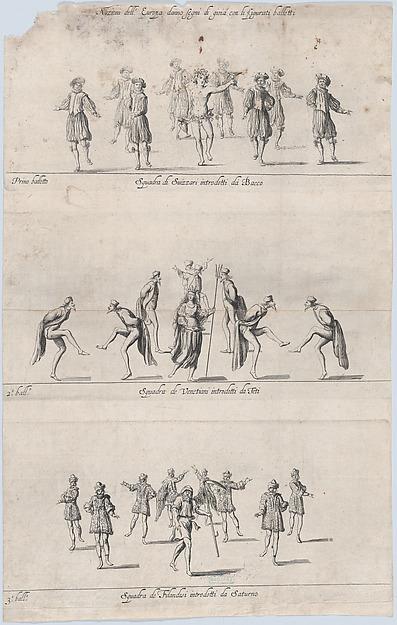 Nazioni dell' Europa danno segni di gioia con li figurati balletti
Primo balletto
Squadra di Suizzari introdotti da Bacco
2.° ball.°
Squadra de Venetiani introdotti da Teti
3.° ball.°
Squadra de' Filandesi introdotti da Saturno